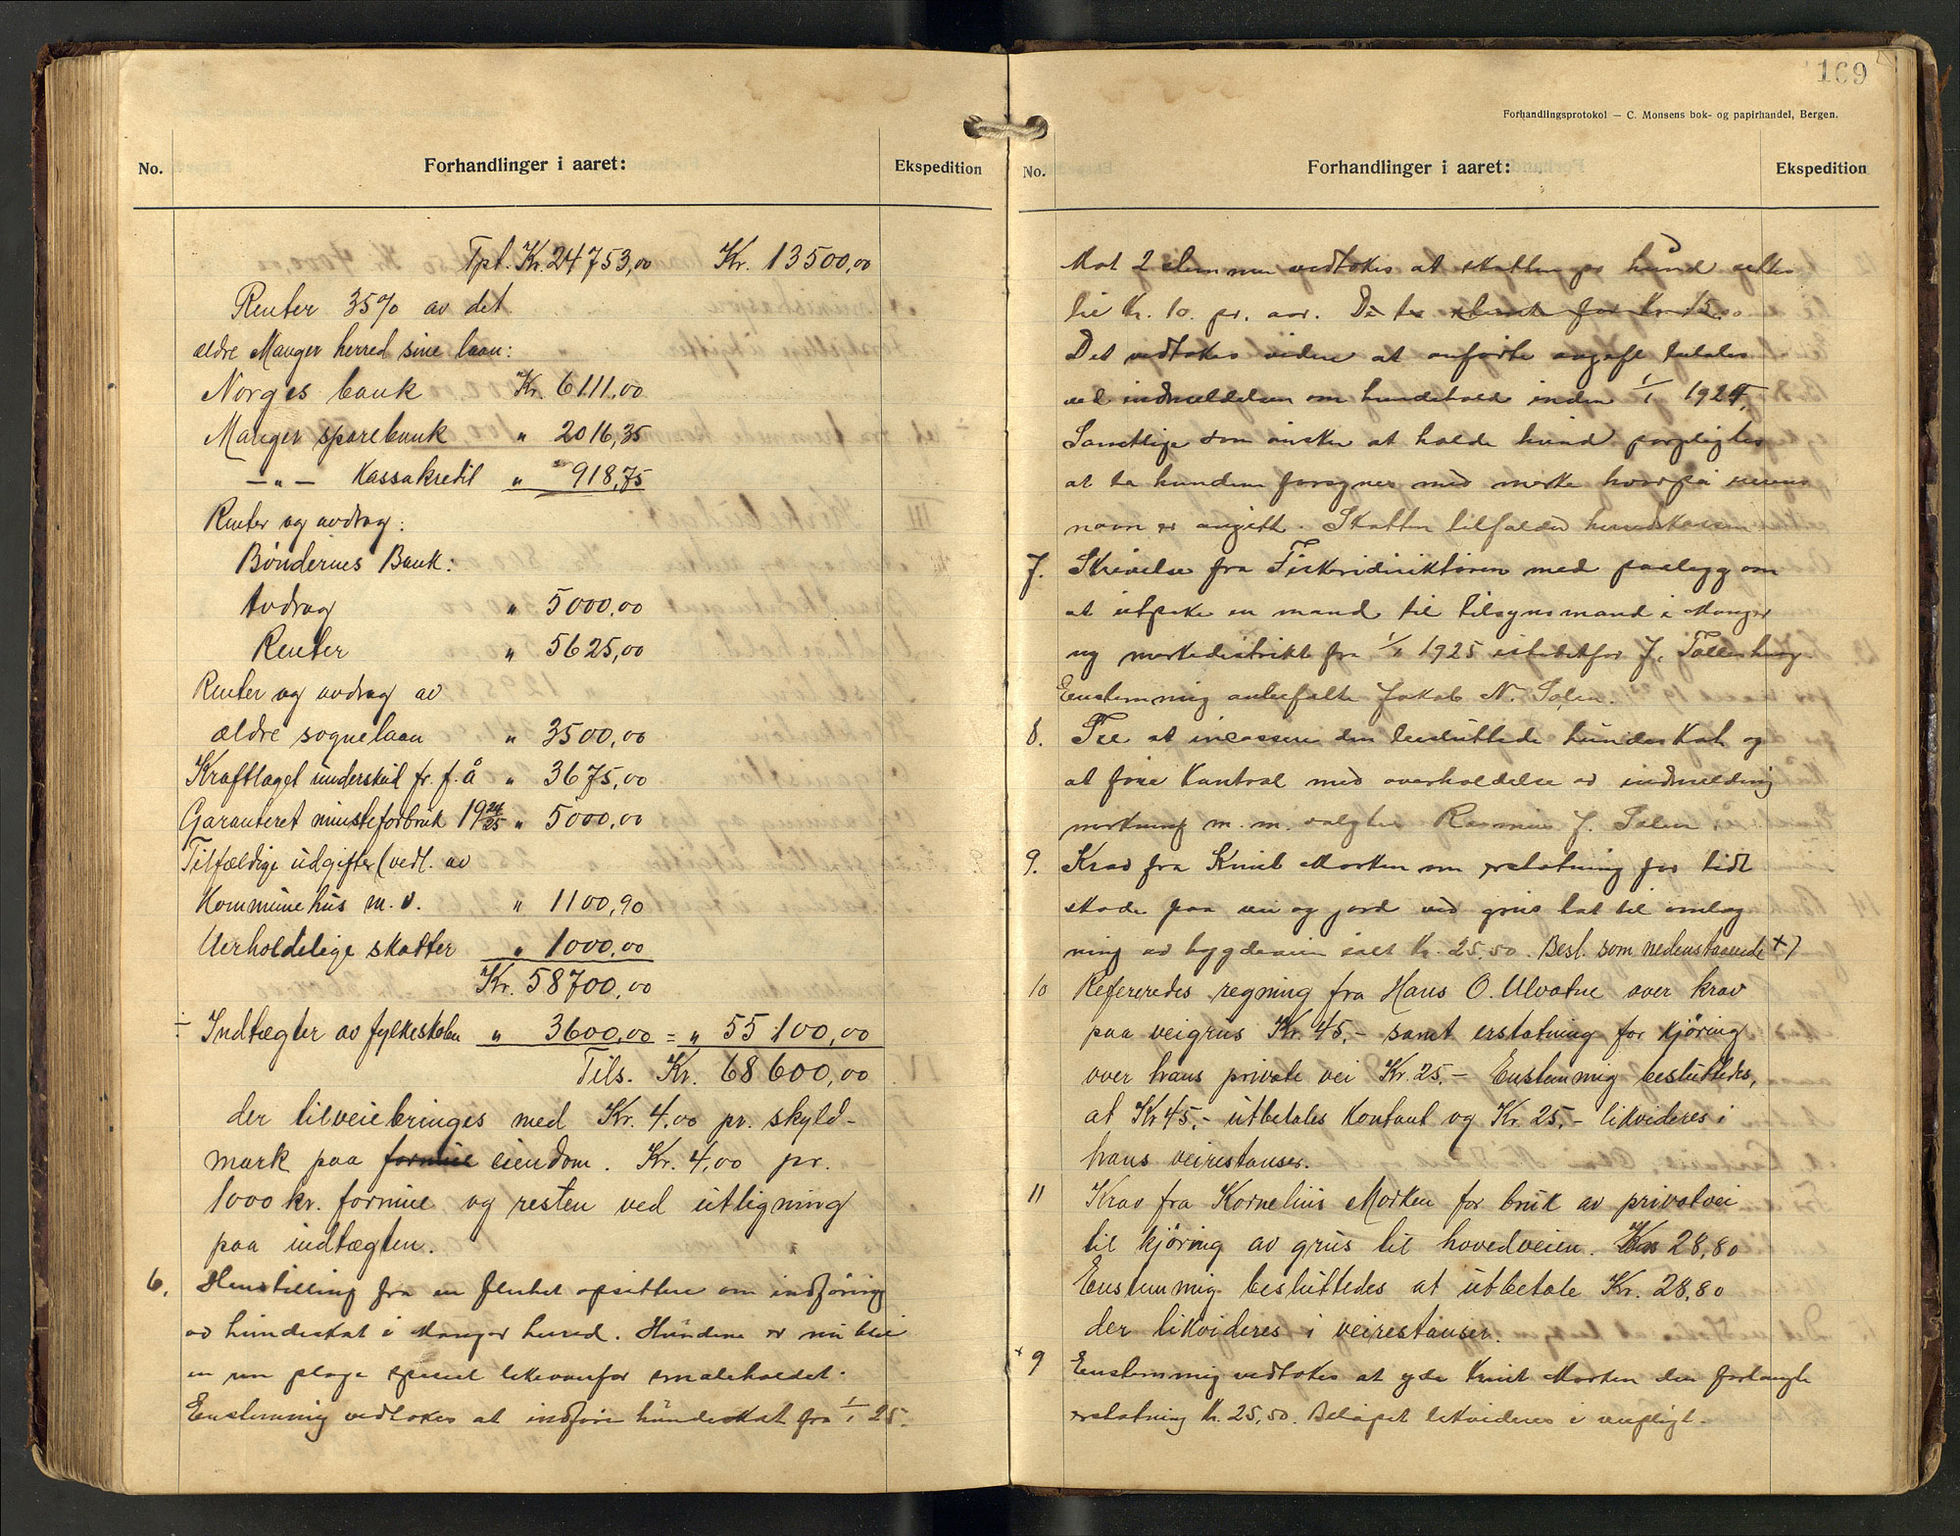 No.
Forhandlinger i aaret:
Ekspedition
Tpt. Kr. 24753,00 Kr. 13500,00
Renter 35% av det
ældre Manger herred sine laan:
Norges bank Kr. 6111,00
Manger sparebank " 2016,35
— " — Kassakredit " 918,75
Renter og avdrag:
Bøndernes Bank:
Avdrag " 5000,00
Renter " 5625,00
Renter og avdrag av
ældre sognelaan " 3500,00
Kraftlaget underskud fr. f. å " 3675,00
Garanteret minsteforbruk 1924/25 " 5000,00
Tilfældige udgifter (vedl. av
Kommunehus m.v. " 1100,90
Uerholdelige skatter " 1000,00
Kr. 58700,00
÷ Indtægter av fylkeskolen " 3600,00 = " 55100,00
Tils. Kr. 68600,00
der tilveiebringes med Kr. 4,00 pr. skyld-
mark paa formue eiendom. Kr. 4,00 pr.
1000 kr. formue og resten ved utligning
paa indtægten.
6. Henstilling fra en flerhet opsittere om indføring
av hundeskat i Manger herred. Hundene er nu blit
en ren plage speciel likeoverfor smaleholdet.
Enstemmig vedtokes at indføre hundeskat fra 1/1 25.
169
Forhandlingsprotokol — C. Monsens bok- og papirhandel, Bergen.
No.
Forhandlinger i aaret:
Ekspedition
Mot 2 stemmer vedtokes at skatten pr hund sættes
til Kr. 10. pr. aar. De to stemte for Kr 15.00
Det vedtokes videre at anførte avgift betales
ved indmeldelsen om hundehold inden 1/1 1924.
Samtlige som ønsker at holde hund forpligtes
at la hunden forsynes med merke hvorpaa eierens
navn er angitt. Skatten tilfalder herredskassen
7. Skrivelse fra Fiskeridirektøren med paalegg om
at utpeke en mand til tilsynsmand i Manger
og merkedistrikt fra 1/1 1925 istedetfor J. Tollenberg
Enstemmig anbefalte Jakob N. Solen.
8. Til at incassere den besluttede hundeskat og
at føre kontrol med overholdelse av indmelding
merking m.m. valgtes Rasmus J. Solen.
9. Krav fra Knut Morken om erstatning for lidt
skade paa vei og jord ved grus tat til omlæg
ning av bygdaveien ialt Kr. 25.50. Besl. som nedenstaaende +)
10 Refereredes regning fra Hans O. Ulvatne over krav
paa veigrus Kr. 45,- samt erstatning for kjøring
over hans private vei Kr. 25.- Enstemmig besluttedes,
at Kr 45,- utbetales kontant og Kr. 25,- likvideres i
hans veirestanser.
11 Krav fra Kornelius Morken for bruk av privatvei
til kjøring av grus til hovedveien. Kr. 28,80
Enstemmig besluttedes at utbetale Kr. 28.80
der likvideres i veirestanser.
+ 9 Enstemmig vedtokes at yde Knut Morken den forlangte
erstatning Kr. 25,50. Beløpet likvideres i veipligt.